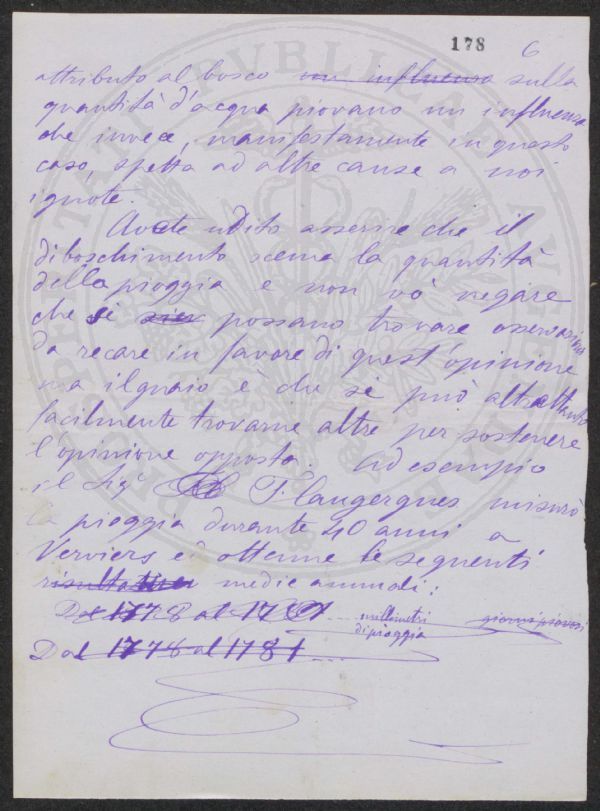 178 6
attributo al bosco un influenza sulla
quantità d'acqua piovana un influenza
che invece, manifestamente in questo
caso, spetta ad altre cause a noi
ignote.
Avete udito asserire che il
diboschimento scema la quantità
della pioggia e non vò negare
che si possano trovare osservazioni
da recare in favore di quest'opinione
ma il guaio è che se può altrettanto
facilmente trovarne altre per sostenere
l'opinione opposta. Ad esempio
il Sigr Flaugergues misurò
la pioggia durante 40 anni a
Verviers ed ottenne le seguenti
risultati medie annuali:
Dal 1778 al millimetri di pioggia giorni piovosi
Dal 1778 al 1781
PVBLICAE